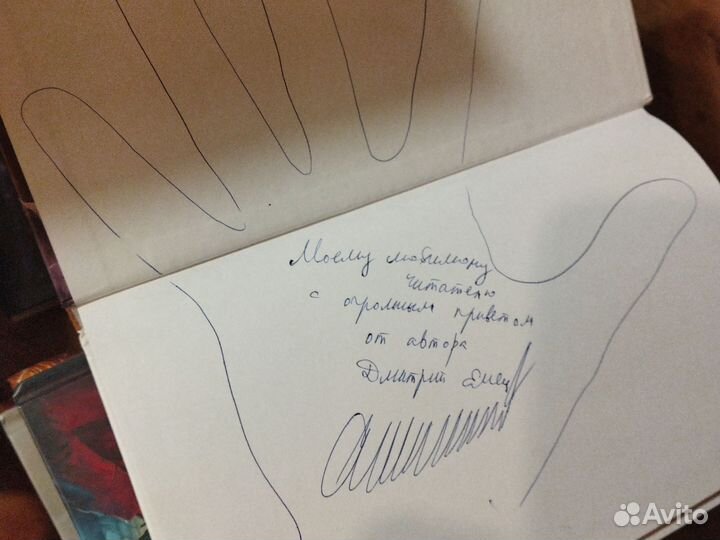 Моему любимому
читателю
с огромным приветом
от автора
Дмитрий Емец
Avito